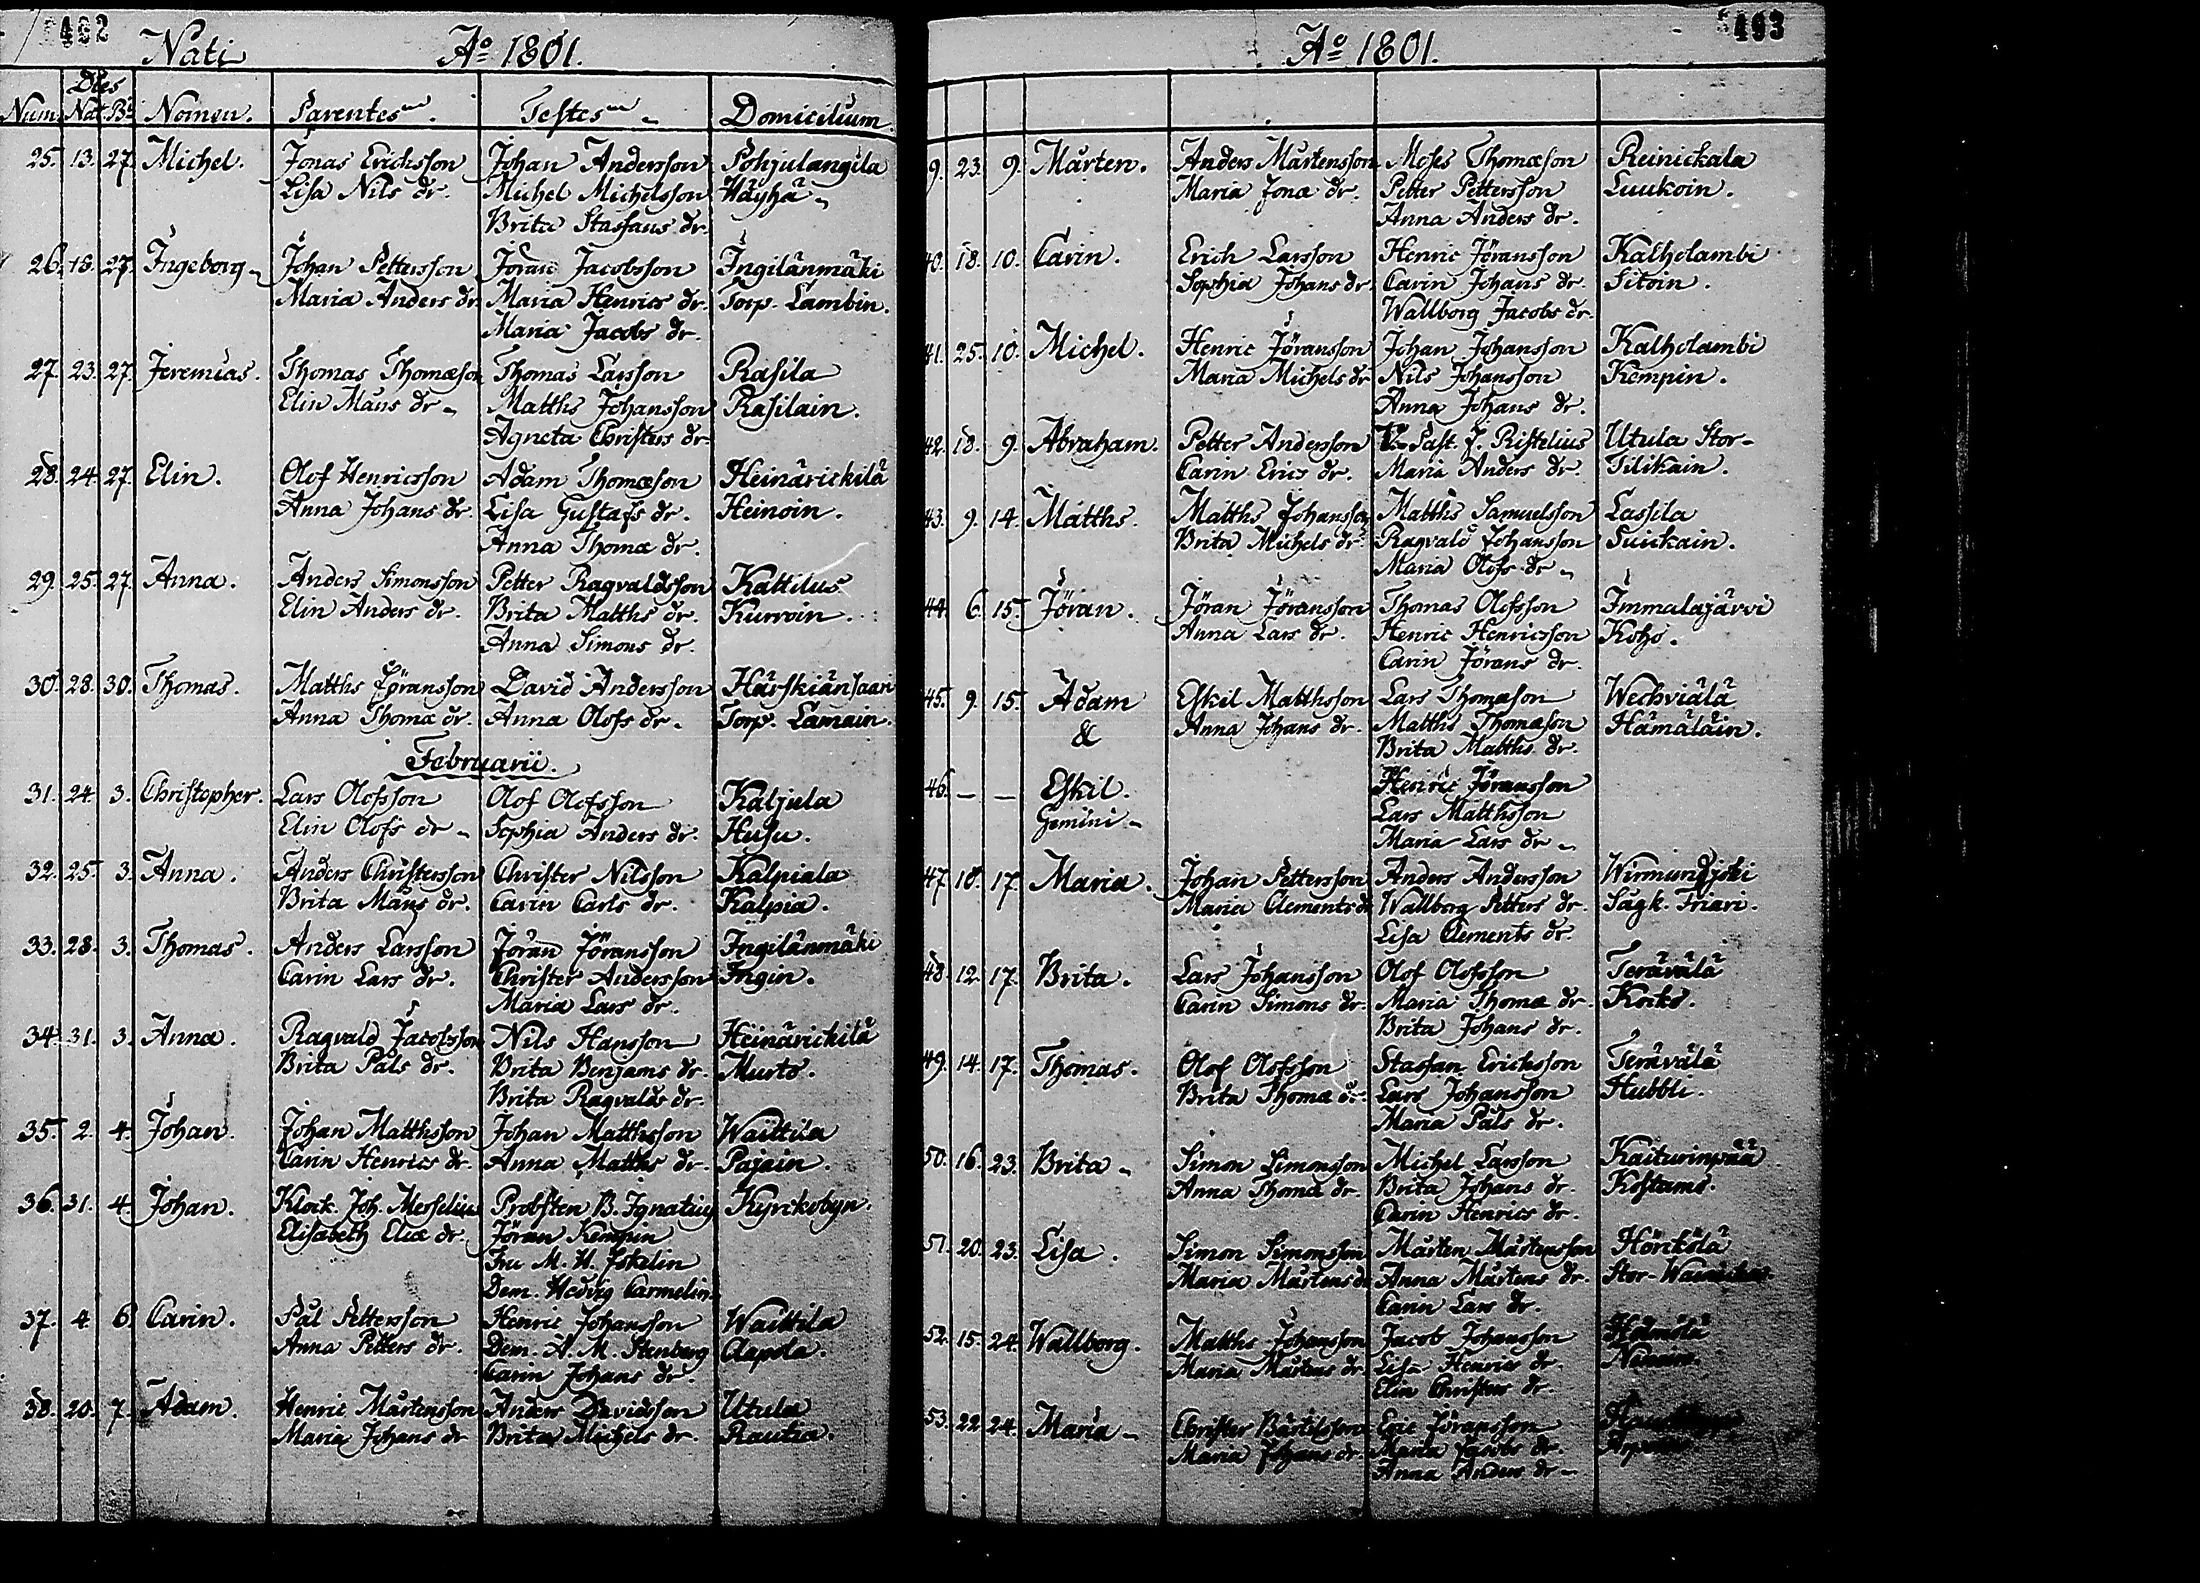 492
Nati Ao 1801.
Dies
Num. Nat. Bt. Nomen. Parentes. Testes Domicilium.
25. 13. 27. Michel. Jonas Erichsson Johan Andersson Pohjulangila
Lisa Nils dr. Michel Michelsson Wäyhä
Brita Staffans dr.
26. 18. 27. Ingeborg Johan Pettersson Jöran Jacobsson Ingilänmäki
Maria Anders dr. Maria Henrics dr. Torp. Lambin.
Maria Jacobs dr.
27. 23. 27. Jeremias. Thomas Thomæson Thomas Larsson Rasila
Elin Måns dr. Matths Johansson Rasilain.
Agneta Christers dr.
28. 24. 27. Elin. Olof Henricsson Adam Thomæson Heinärickilä
Anna Johans dr. Lisa Gustafs dr. Heinoin.
Anna Thomæ dr.
29. 25. 27. Anna. Anders Simonsson Petter Ragvaldsson Kattilus
Elin Anders dr. Brita Matths dr. Kurvoin.
Anna Simons dr.
30. 28. 30. Thomas. Matths Jöransson David Andersson Härskiänsaari
Anna Thomæ dr. Anna Olofs dr. Torp. Lamain.
Februarii.
31. 24. 3. Christopher. Lars Olofsson Olof Olofsson Kaljula
Elin Olofs dr. Sophia Anders dr. Husu.
32. 25. 3. Anna. Anders Christersson Christer Nilsson Kalpiala
Brita Måns dr. Carin Carls dr. Kalpia.
33. 28. 3. Thomas. Anders Larsson Jöran Jöransson Ingilänmäki
Carin Lars dr. Christer Andersson Ingin.
Maria Lars dr.
34. 31. 3. Anna. Ragvald Jacobsson Nils Hansson Heinärickilä
Brita Påls dr. Brita Benjams dr. Murto.
Brita Ragvalds dr.
35. 2. 4. Johan. Johan Matthsson Johan Matthsson Waittila
Carin Henrics dr. Anna Matths dr. Pajain.
36. 31. 4. Johan. Klock. Joh. Messelius Probsten B. Ignatius Kyrckobyn.
Elisabeth Eliæ dr. Jöran Kempin
Fru M. H.
Dem. Hedvig Carmelin.
37. 4. 6. Carin. Pål Pettersson Henric Johansson Waittila
Anna Petters dr. Dem. A. M. Stenberg Clapola.
Carin Johans dr.
38. 20. 7. Adam. Henric Mårtensson Anders Davidsson Utula
Maria Johans dr. Brita Michels dr. Rautia.
493
Ao 1801.
9. 23. 9. Mårten. Anders Mårtensson Moses Thomæson Reinickala
Maria Jonæ dr. Petter Pettersson Luukoin.
Anna Anders dr.
40. 18. 10. Carin. Erich Larsson Henric Jöransson Kalholambi
Sophia Johans dr. Carin Johans dr. Sitoin.
Wallborg Jacobs dr.
41. 25. 10. Michel. Henric Jöransson Johan Johansson Kalholambi
Maria Michels dr. Nils Johansson Kempin.
Anna Johans dr.
42. 18. 9. Abraham. Petter Andersson Past. J. Ristelius Utula Stor-
Carin Erics dr. Maria Anders dr. Tilikain.
43. 9. 14. Matths. Matths Johansson Matths Samuelsson Lassila
Brita Michels dr. Ragvald Johansson Suickain.
Maria Olofs dr.
44. 6. 15. Jöran. Jöran Jöransson Thomas Olofsson Immalajärvi
Anna Lars dr. Henric Henricsson Koho.
Carin Jörans dr.
45. 9. 15. Adam Eskil Matthsson Lars Thomæson Wechviälä
& Anna Johans dr. Matths Thomæson Hämäläin.
Brita Matths dr.
46. — — Eskil. Henric Jöransson
Gemini Lars Matthsson
Maria Lars dr.
47. 18. 17. Maria. Johan Pettersson Anders Andersson
Maria Clements dr. Wallborg Petters dr. Sågk. Friari.
Lisa Clements dr.
48. 12. 17. Brita. Lars Johansson Olof Olofsson Terävälä
Carin Simons dr. Maria Thomæ dr. Korko.
Brita Johans dr.
49. 14. 17. Thomas. Olof Olofsson Staffan Ericksson Terävälä
Brita Thomæ dr. Lars Johansson Hubbli.
Maria Påls dr.
50. 16. 23. Brita Simon Simonsson Michel Larsson Kaiturinpää
Anna Thomæ dr. Brita Johans dr. Kostamo.
Carin Henrics dr.
51. 20. 23. Lisa. Simon Simonsson Mårten Mårtensson Hörckölä
Maria Mårtens dr. Anna Mårtens dr. Stor-
Carin Lars dr.
52. 15. 24. Wallborg. Matths Johansson Jacob Johansson
Maria Mårtens dr. Lisa Henrics dr.
Elin Christers dr.
53. 22. 24. Maria Christer Bärtilsson Eric Jöransson
Maria Johans dr. Maria Jacobs dr.
Anna Anders dr.